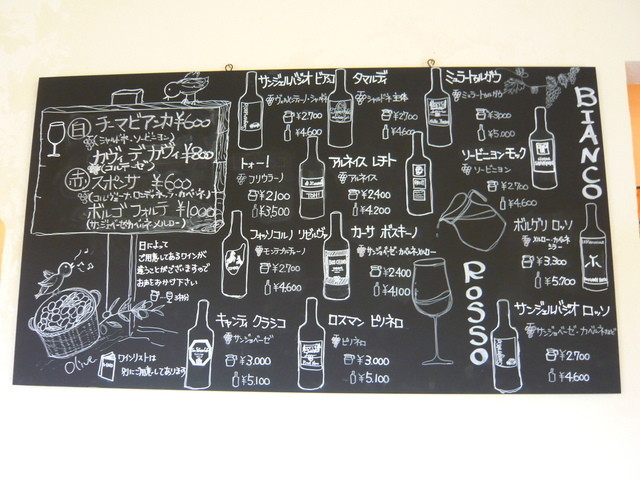 白 チーマビアンカ ¥600
(シャルドネ・ソーヴィニヨン)
ガヴィ デ ガヴィ ¥800
(コルテーゼ)
赤 スポンサ ¥600
ボルゴ フォルテ ¥1000
(サンジョベーゼ・カベルネ・メルロー)
日によって
ご用意してあるワインが
違うことがございますので
お声をおかけ下さい
Olive
ワインリストは
別にご用意してあります
サンジェルバジオ ビアンコ
¥2700
¥4600
タマルディ
シャルドネ主体
¥2700
¥4600
ミュラートゥルガウ
ミュラートゥルガウ
¥3000
¥5,000
BIANCO
トカーイ
フリウラーノ
¥2100
¥3500
アルネイス レチト
アルネイス
¥2,400
¥4,200
ソービニヨン モック
ソービニヨン
¥2700
¥4,600
モンテプチアーノ
¥2.700
¥4,600
カーサ ボスキーノ
サンジョベーゼ・カベルネ・メルロー
¥2400
¥4100
ROSSO
ボルゲリ ロッソ
メルロー・カベルネ
シラー
¥3,300
¥5.700
キャンティ クラシコ
サンジョベーゼ
¥3.000
¥5.100
ロスマン ピリネロ
ピリネロ
¥3.000
¥5.100
サンジェルバジオ ロッソ
サンジョベーゼ・カベルネなど
¥2.700
¥4.600